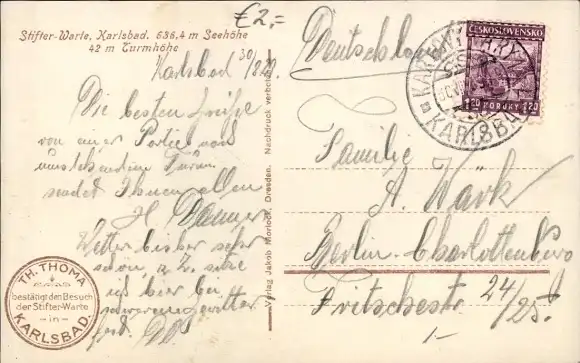 €2,=
Stifter-Warte, Karlsbad. 636,4 m Seehöhe
42 m Turmhöhe
Karlsbad 30/8 29.
Die besten Grüße
von einer Partie nach
umstehendem Turm
sendet Ihnen allen
H.
Wetter bisher sehr
schön, z. Zt. sitze
ich hier bei
gewitter
TH. THOMA
bestätigt den Besuch
der Stifter-Warte
- in -
KARLSBAD.
Verlag Jakob Morlock, Dresden. Nachdruck verboten.
Deutschland
ČESKOSLOVENSKO
1.20 KORUNY 1.20
KARLOVY VARY
KARLSBAD
Familie
A. Wark
Berlin-Charlottenburg
Fritschestr. 24/25.
1-